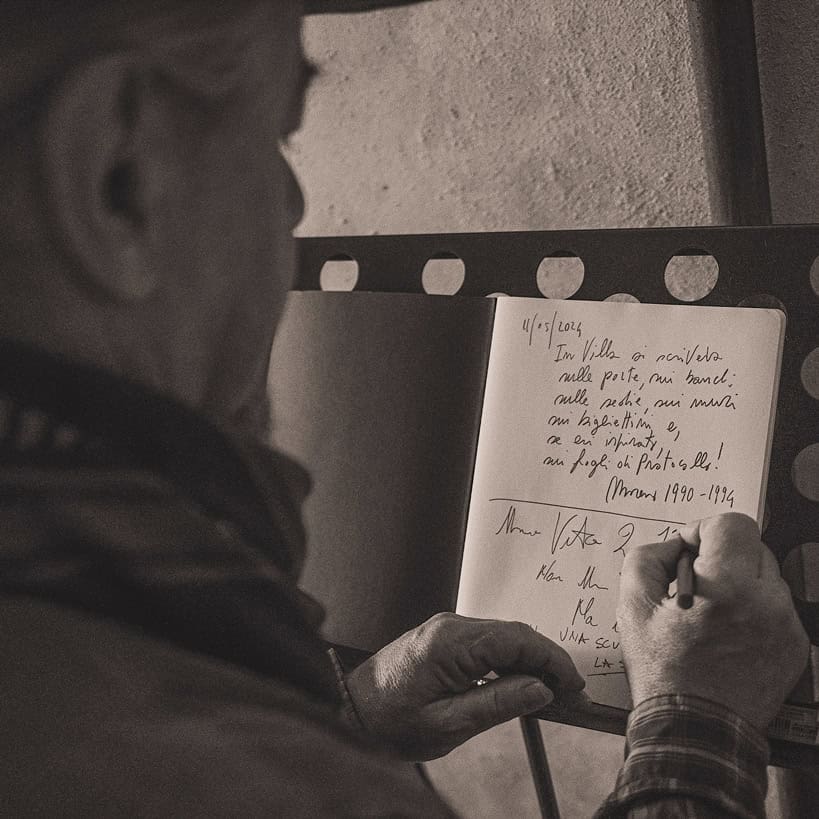 11/05/2024
In Villa si scriveva
sulle porte, sui banchi,
sulle sedie, sui muri
sui bigliettini e,
se eri ispirato,
sui fogli di Protocollo!
1990-1994
Vita 2
Ma
UNA SCU
LA